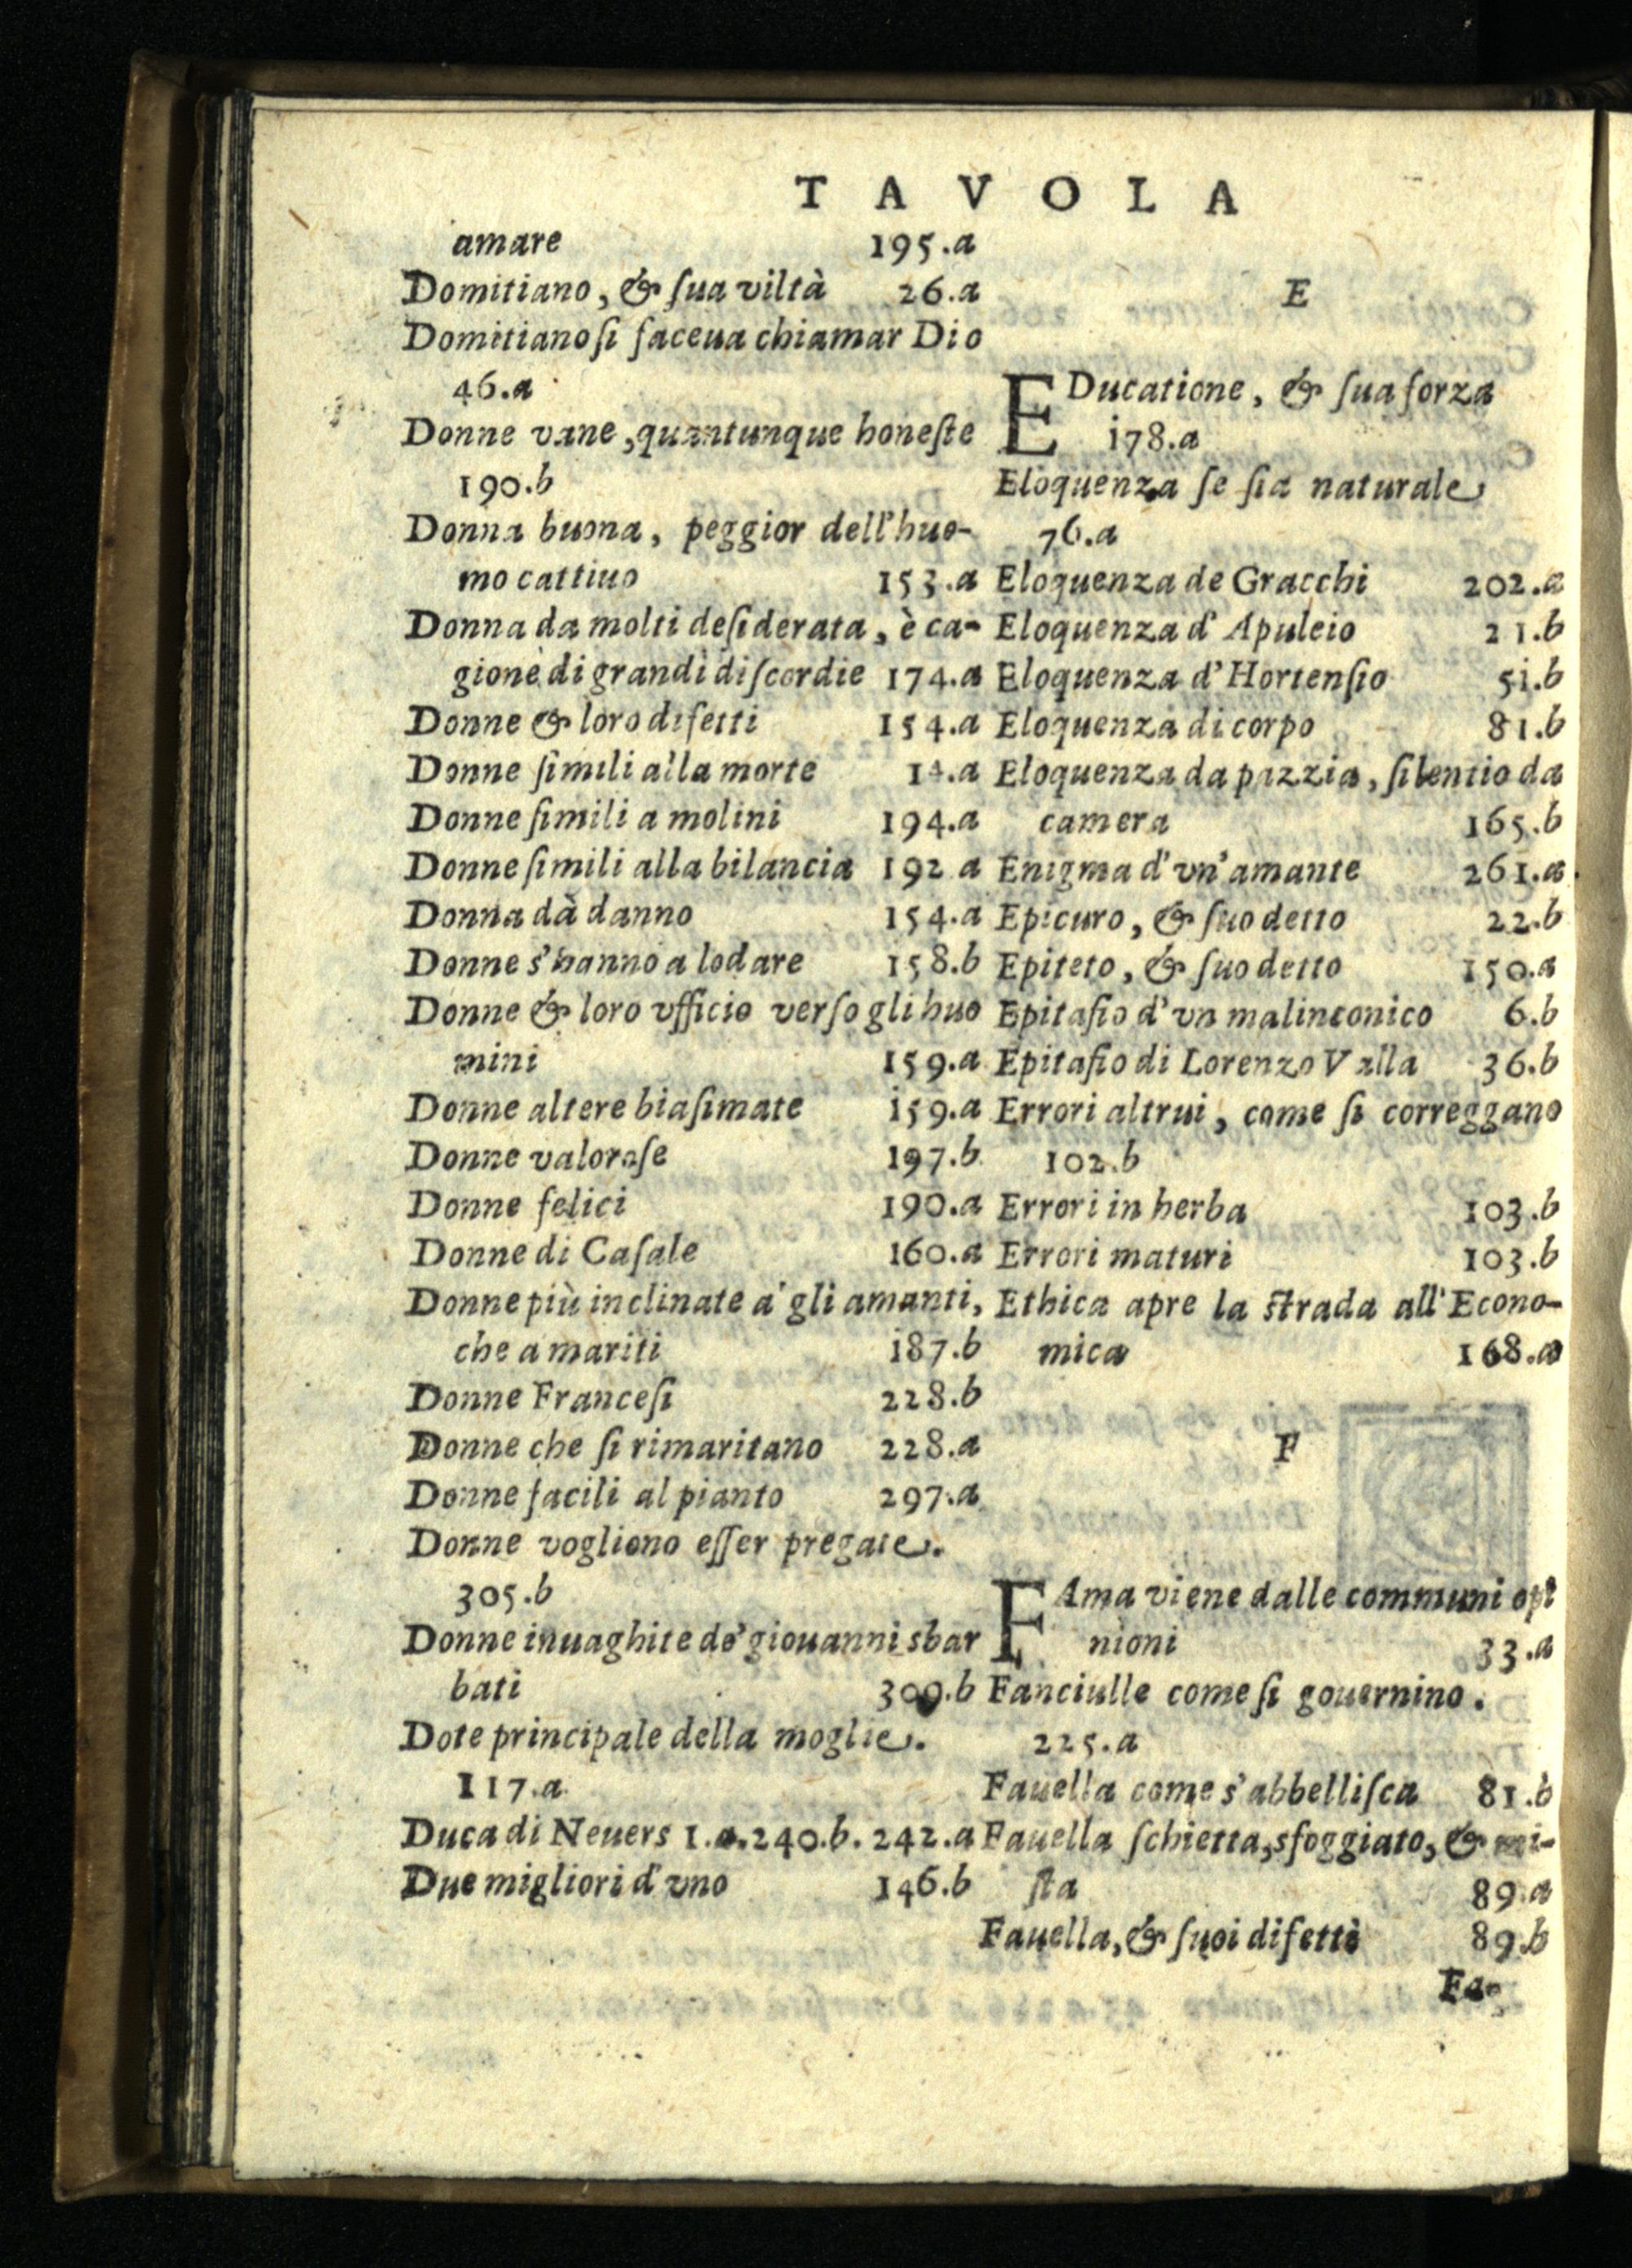 TAVOLA
amare 195.a
Domitiano, & ſua viltà 26.a
Domitiano ſi faceua chiamar Dio
46.a
Donne vane, quantunque honeſte
190.b
Donna buona, peggior dell'huo-
mo cattiuo 153.a
Donna da molti deſiderata, è ca-
gione di grandi diſcordie 174.a
Donne & loro difetti 154.a
Donne ſimili alla morte 14.a
Donne ſimili a molini 194.a
Donne ſimili alla bilancia 192 a
Donna dà danno 154.a
Donne s'hanno a lodare 158.b
Donne & loro vfficio verſo gli huo
mini 159.a
Donne altere biaſimate 159.a
Donne valoroſe 197.b
Donne felici 190.a
Donne di Caſale 160.a
Donne più inclinate a' gli amanti,
che a mariti 187.b
Donne Franceſi 228.b
Donne che ſi rimaritano 228.a
Donne facili al pianto 297.a
Donne vogliono eſſer pregate.
305.b
Donne inuaghite de' giouanni sbar
bati 309.b
Dote principale della moglie.
117.a
Duca di Neuers 1.a.240.b. 242.a
Due migliori d'vno 146.b
E
EDucatione, & ſua forza
178.a
Eloquenza ſe ſia naturale
76.a
Eloquenza de Gracchi 202.a
Eloquenza d'Apuleio 21.b
Eloquenza d'Hortenſio 51.b
Eloquenza di corpo 81.b
Eloquenza da pazzia, ſilentio da
camera 165.b
Enigma d'vn'amante 261.a.
Epicuro, & ſuo detto 22.b
Epiteto, & ſuo detto 150.a
Epitafio d'vn malinconico 6.b
Epitafio di Lorenzo Valla 36.b
Errori altrui, come ſi correggano
102.b
Errori in herba 103.b
Errori maturi 103.b
Ethica apre la ſtrada all'Econo-
mica 168.a
F
FAma viene dalle communi opi
nioni 33.a
Fanciulle come ſi gouernino.
225.a
Fauella come s'abbelliſca 81.b
Fauella ſchietta, sfoggiato, & mi-
ſta 89.a
Fauella, & ſuoi difetti 89.b
Fa-